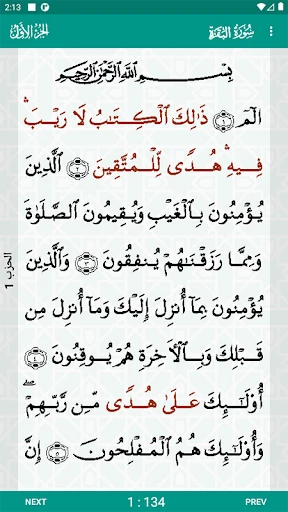 2:13
الجزء الأول
سورة البقرة
بِسْمِ ٱللَّهِ ٱلرَّحْمَٰنِ ٱلرَّحِيمِ
الٓمٓ ١ ذَٰلِكَ ٱلْكِتَٰبُ لَا رَيْبَ ۛ
فِيهِ ۛ هُدًى لِّلْمُتَّقِينَ ٢ ٱلَّذِينَ
يُؤْمِنُونَ بِٱلْغَيْبِ وَيُقِيمُونَ ٱلصَّلَوٰةَ
وَمِمَّا رَزَقْنَٰهُمْ يُنفِقُونَ ٣ وَٱلَّذِينَ
يُؤْمِنُونَ بِمَآ أُنزِلَ إِلَيْكَ وَمَآ أُنزِلَ مِن
قَبْلِكَ وَبِٱلْأَخِرَةِ هُمْ يُوقِنُونَ ٤
أُوْلَٰٓئِكَ عَلَىٰ هُدًى مِّن رَّبِّهِمْ ۖ
وَأُوْلَٰٓئِكَ هُمُ ٱلْمُفْلِحُونَ ٥ إِنَّ
الحزب 1
NEXT
1 : 134
PREV